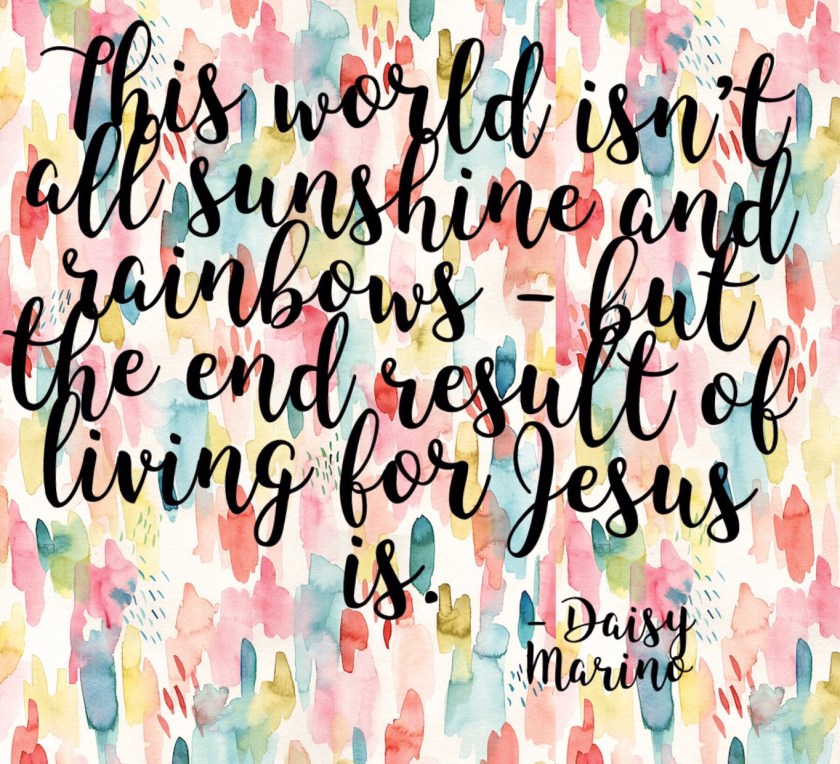 This world isn't
all sunshine and
rainbows - but
the end result of
living for Jesus
is.
- Daisy
Marino